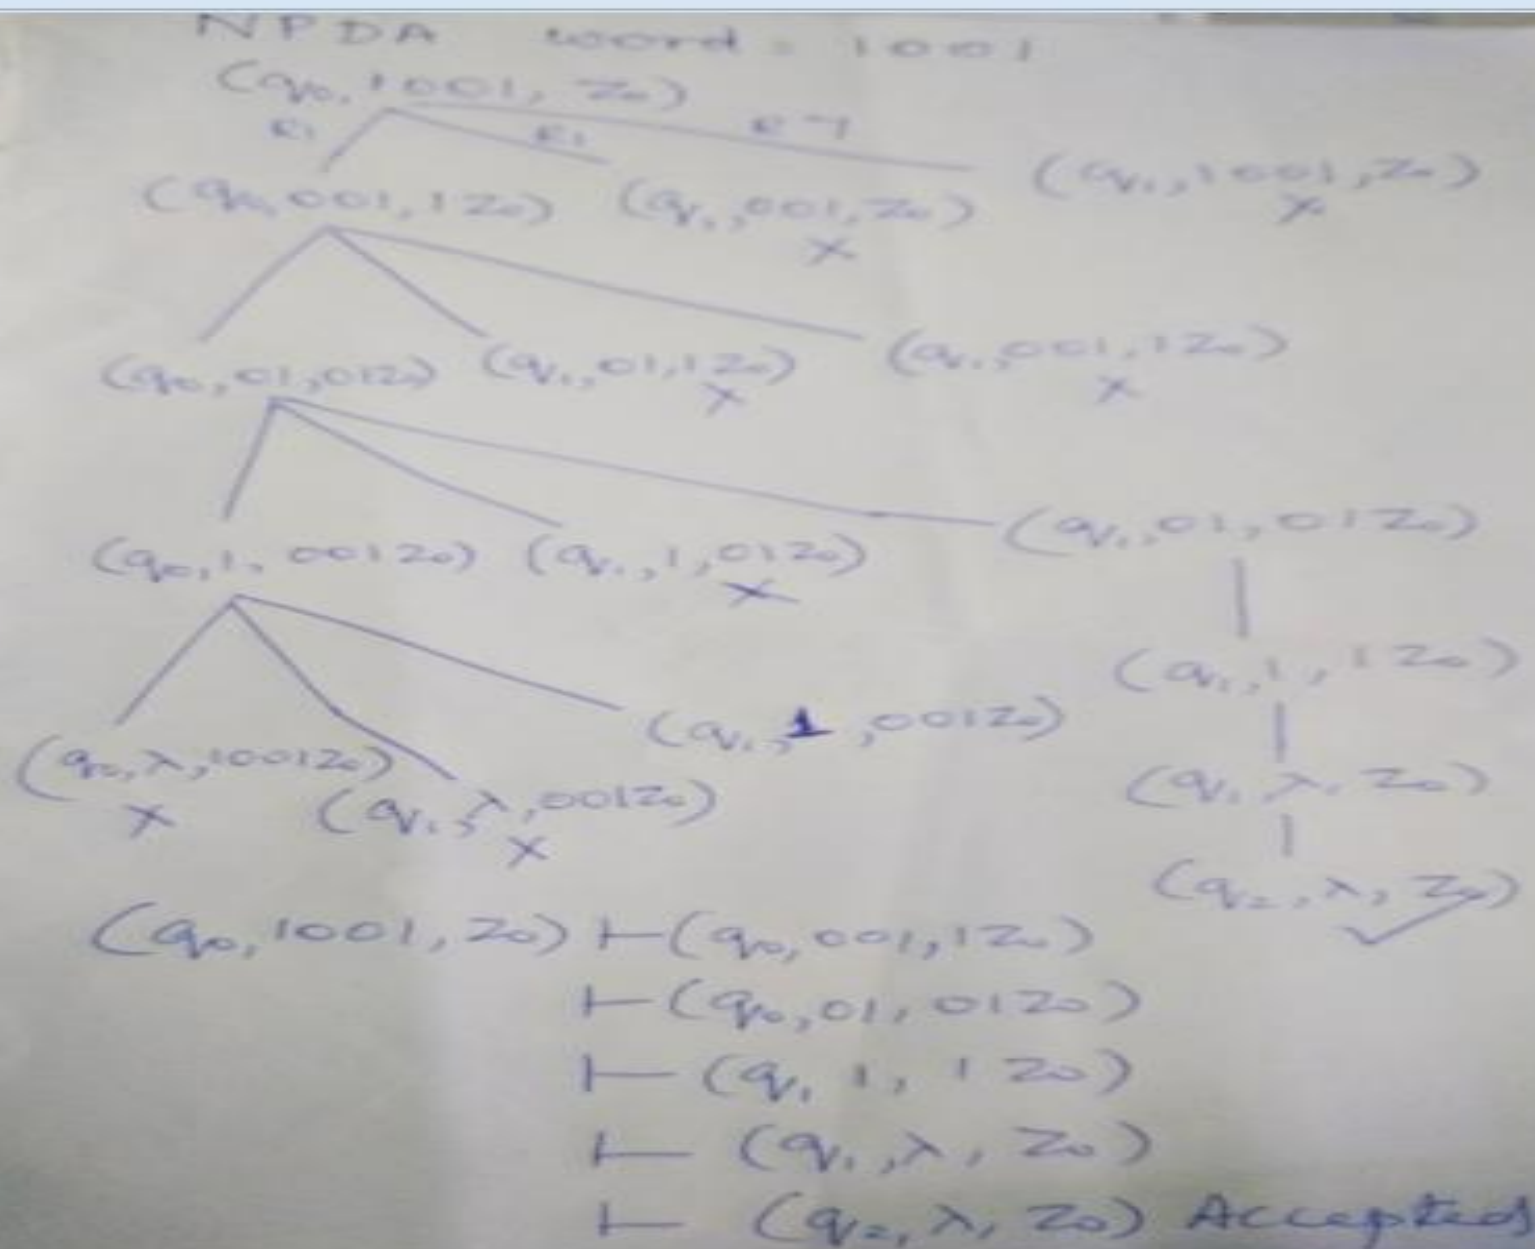 NPDA word = 1001
(q₀, 1001, Z₀)
(q₀, 001, 1Z₀) (q₁, 001, Z₀) (q₁, 1001, Z₀)
X X
(q₀, 01, 01Z₀) (q₁, 01, 1Z₀) (q₁, 001, 1Z₀)
X X
(q₀, 1, 001Z₀) (q₁, 1, 01Z₀) (q₁, 01, 01Z₀)
X
(q₁, 1, 1Z₀)
(q₀, λ, 1001Z₀) (q₁, λ, 001Z₀) (q₁, 1, 001Z₀) (q₁, λ, Z₀)
X X
(q₂, λ, Z₀) ✓
(q₀, 1001, Z₀) ⊢ (q₀, 001, 1Z₀)
⊢ (q₀, 01, 01Z₀)
⊢ (q₁, 1, 1Z₀)
⊢ (q₁, λ, Z₀)
⊢ (q₂, λ, Z₀) Accepted